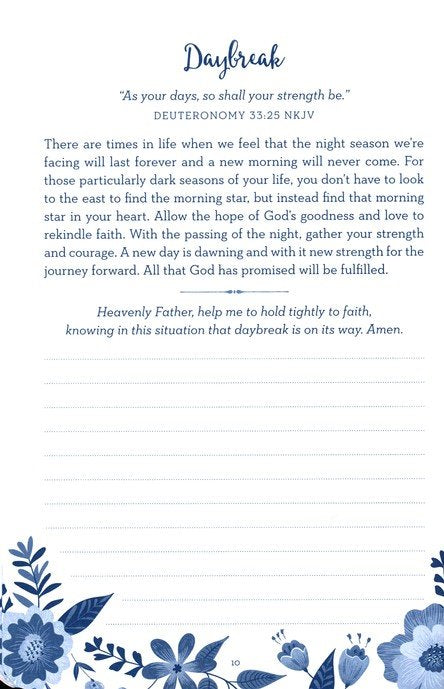 Daybreak
“As your days, so shall your strength be.”
DEUTERONOMY 33:25 NKJV
There are times in life when we feel that the night season we’re
facing will last forever and a new morning will never come. For
those particularly dark seasons of your life, you don’t have to look
to the east to find the morning star, but instead find that morning
star in your heart. Allow the hope of God’s goodness and love to
rekindle faith. With the passing of the night, gather your strength
and courage. A new day is dawning and with it new strength for the
journey forward. All that God has promised will be fulfilled.
Heavenly Father, help me to hold tightly to faith,
knowing in this situation that daybreak is on its way. Amen.
10